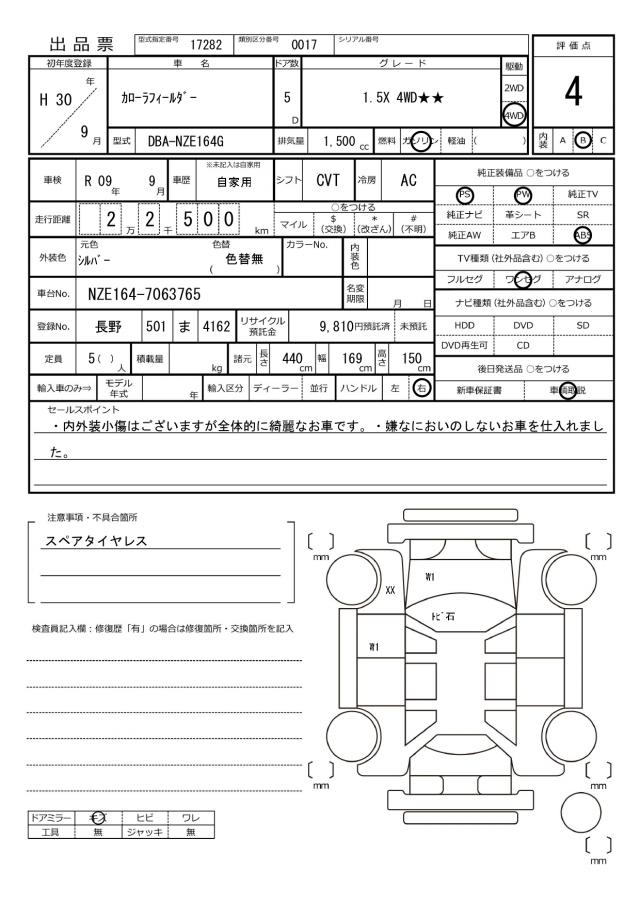 出品票 型式指定番号 17282 類別区分番号 0017 シリアル番号
評価点
4
内装 A B C
初年度登録 車名 ドア数 グレード 駆動
H 30 年 9 月
カローラフィールダー 5 D 1.5X 4WD★★ 2WD 4WD
型式 DBA-NZE164G 排気量 1,500 cc 燃料 ガソリン 軽油 ( )
車検 R 09 年 9 月 車歴 ※未記入は自家用 自家用 シフト CVT 冷房 AC
走行距離 2 2 5 0 0 万 千 km
○をつける
マイル $ (交換) * (改ざん) # (不明)
外装色 元色 シルバー 色替 ( 色替無 ) カラーNo. 内装色
車台No. NZE164-7063765 名変期限 月 日
登録No. 長野 501 ま 4162 リサイクル預託金 9,810円預託済 未預託
定員 5 ( ) 人 積載量 kg 諸元 長さ 440 cm 幅 169 cm 高さ 150 cm
輸入車のみ⇒ モデル年式 年 輸入区分 ディーラー 並行 ハンドル 左 右
純正装備品 ○をつける
PS PW 純正TV
純正ナビ 革シート SR
純正AW エアB ABS
TV種類 (社外品含む) ○をつける
フルセグ ワンセグ アナログ
ナビ種類 (社外品含む) ○をつける
HDD DVD SD
DVD再生可 CD
後日発送品 ○をつける
新車保証書 車輌取説
セールスポイント
・内外装小傷はございますが全体的に綺麗なお車です。・嫌なにおいのしないお車を仕入れまし
た。
注意事項・不具合箇所
スペアタイヤレス
検査員記入欄：修復歴「有」の場合は修復箇所・交換箇所を記入
ドアミラー キズ ヒビ ワレ
工具 無 ジャッキ 無
〔 〕 mm
〔 〕 mm
XX
W1
トビ石
W1
〔 〕 mm
〔 〕 mm
〔 〕 mm